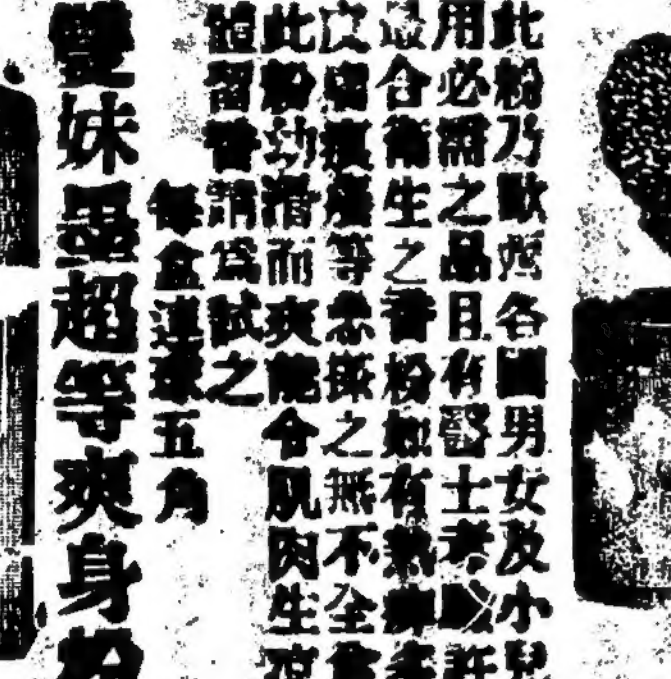 此粉乃歐各國男女及小兒
用必需之品且有醫士考驗許
最合衛生之香粉如有熱痱
痕癢等患搽之無不全
此粉幼滑而爽能令肌肉生
體留香請爲試之
每盒連球五角
雙妹墨超等爽身粉